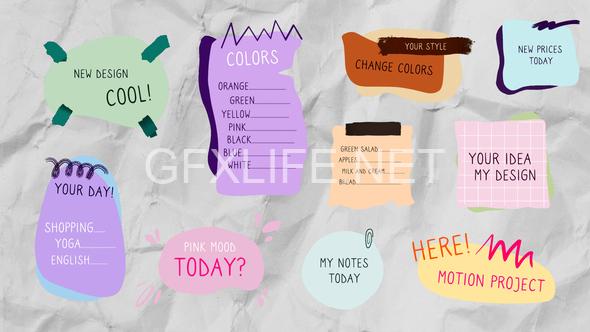 NEW DESIGN
COOL!
COLORS
ORANGE
GREEN
YELLOW
PINK
BLACK
BLUE
WHITE
YOUR STYLE
CHANGE COLORS
NEW PRICES
TODAY
GREEM SALAD
APPLES
MILK AND CREAM
BREAD
YOUR IDEA
MY DESIGN
GFXLIFE.NET
YOUR DAY!
SHOPPING
YOGA
ENGLISH
PINK MOOD
TODAY?
MY NOTES
TODAY
HERE!
MOTION PROJECT